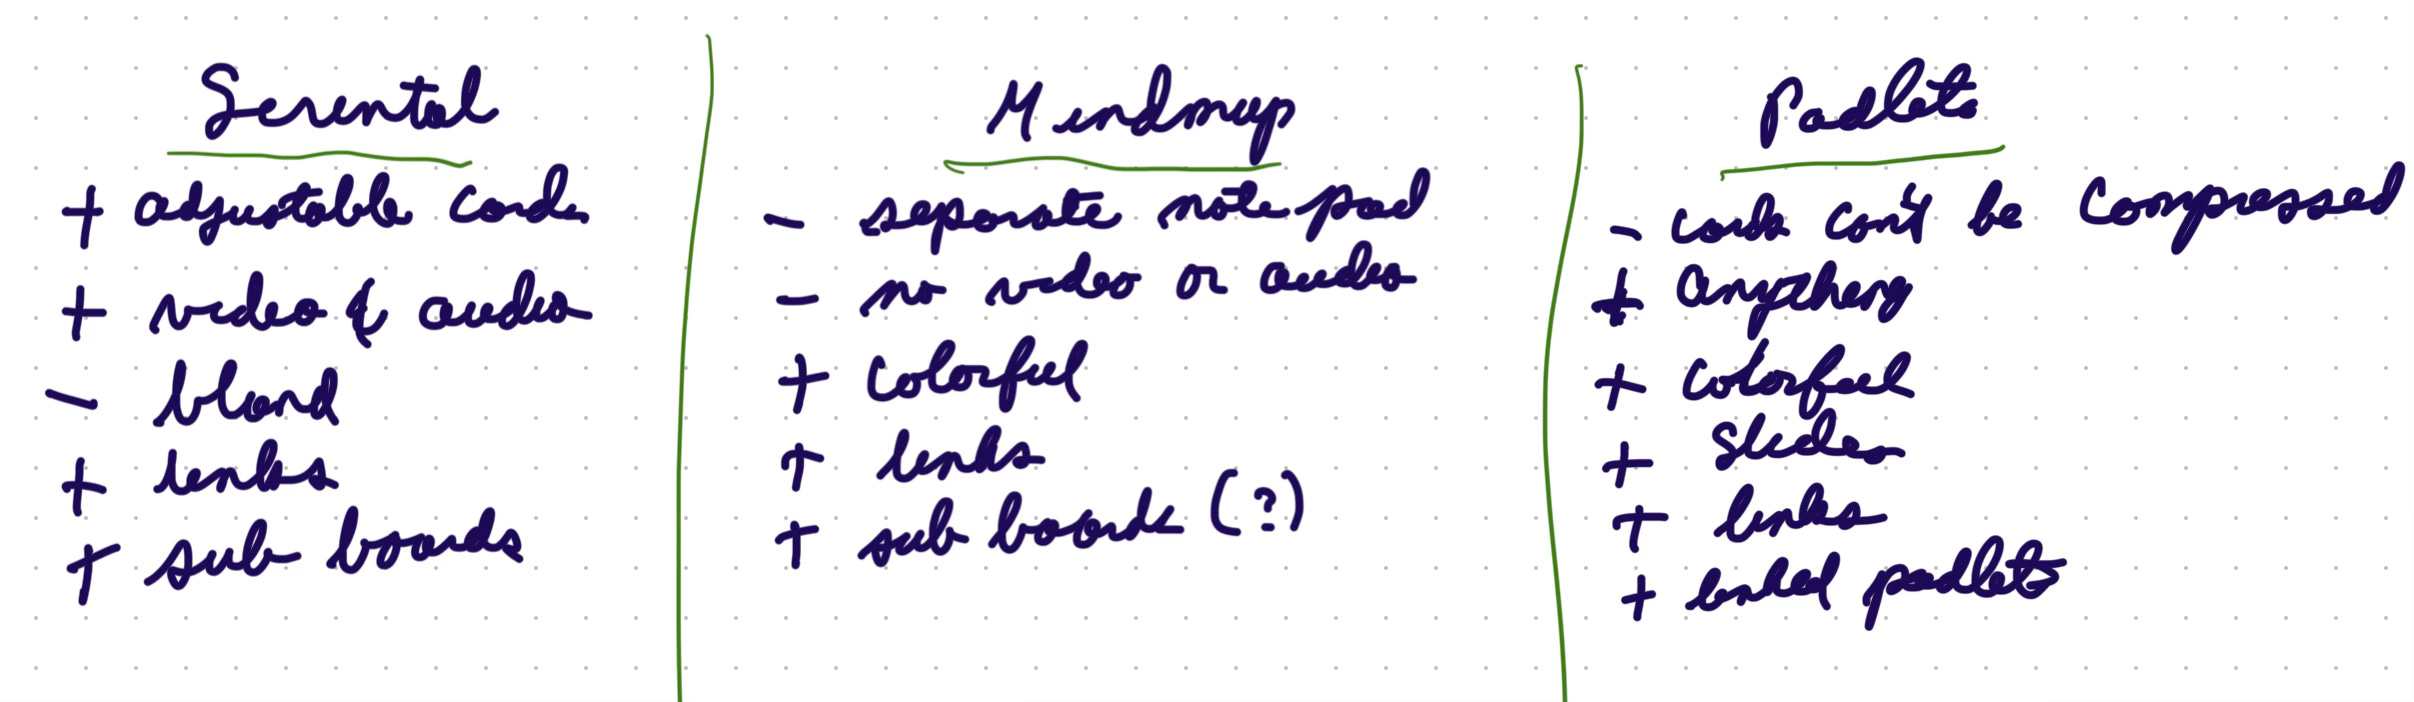 Scrintal
+ adjustable cards
+ video & audio
- bland
+ links
+ sub boards
Mindmup
- separate note pad
- no video or audio
+ colorful
+ links
+ sub boards (?)
Padlets
- cards can't be compressed
+ anything
+ colorful
+ slides
+ links
+ linked padlets